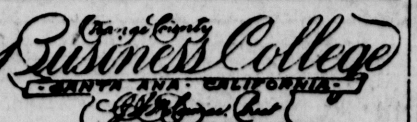 Orange County
Business College
SANTA ANA · CALIFORNIA